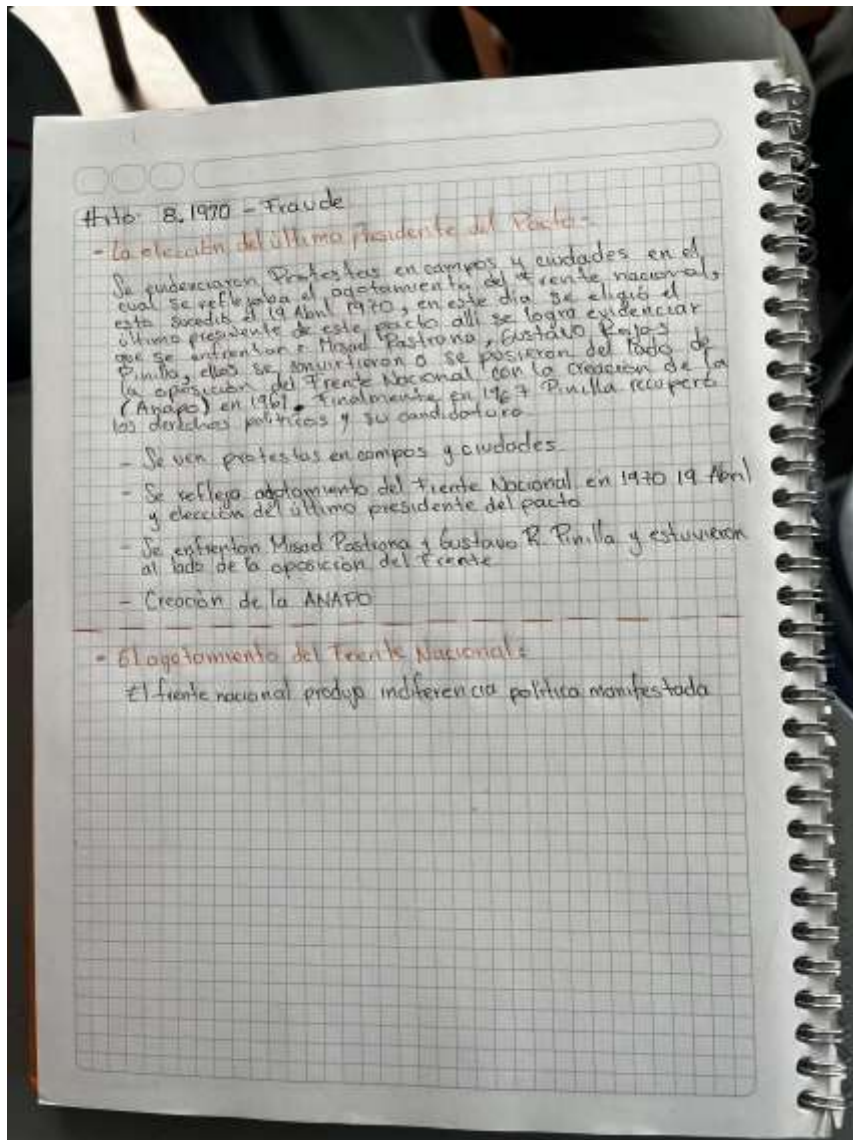 Hito 8. 1970 - Fraude
- La elección del último presidente del Pacto -
Se evidenciaron Protestas en campos y ciudades en el
cual se reflejaba el agotamiento del frente nacional,
esto sucedió el 19 Abril 1970, en este día se eligió el
último presidente de este pacto allí se logra evidenciar
que se enfrentan a Misael Pastrana, Gustavo Rojas
Pinilla, ellos se convirtieron o se posieron del lado de
la oposición del Frente Nacional con la creación de la
(Anapo) en 1961. Finalmente en 1967 Pinilla recuperó
los derechos políticos y su candidatura
- Se ven protestas en campos y ciudades
- Se refleja agotamiento del Frente Nacional en 1970 19 Abril
y elección del último presidente del pacto
- Se enfrentan Misael Pastrana y Gustavo R. Pinilla y estuvieron
al lado de la oposición del Frente
- Creación de la ANAPO
- El agotamiento del Frente Nacional:
El frente nacional produjo indiferencia política manifestada